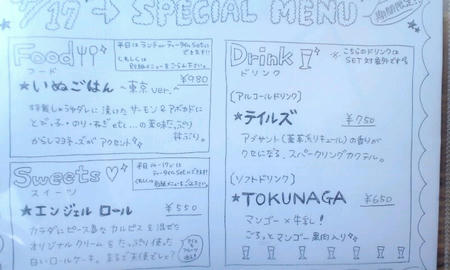 7/17 → SPECIAL MENU
期間限定
Food
フード
平日はランチorティータイムSetに
できます!!
くわしくは
別紙メニューをごらん下さい。
★いぬごはん ～東京ver.～ ¥980
特製しょうゆダレに漬けたサーモン&アボカドに
のり・ねぎetc…の薬味たっぷり
丼ぶり。
からしマヨネーズがアクセント
Sweets
スイーツ
★エンジェル ロール ¥550
カラダにピースな カルピスを混ぜた
オリジナルクリームをたっぷり使った
白いロールケーキ。まるで天使でしょ?
Drink
ドリンク
※こちらのドリンクは
SET対象外です
〔アルコールドリンク〕
★テイルズ ¥750
アプサント(薬草系リキュール)の香りが
クセになる、スパークリングカクテル。
〔ソフトドリンク〕
★TOKUNAGA ¥650
マンゴー×牛乳!
ごろっとマンゴー果肉入り